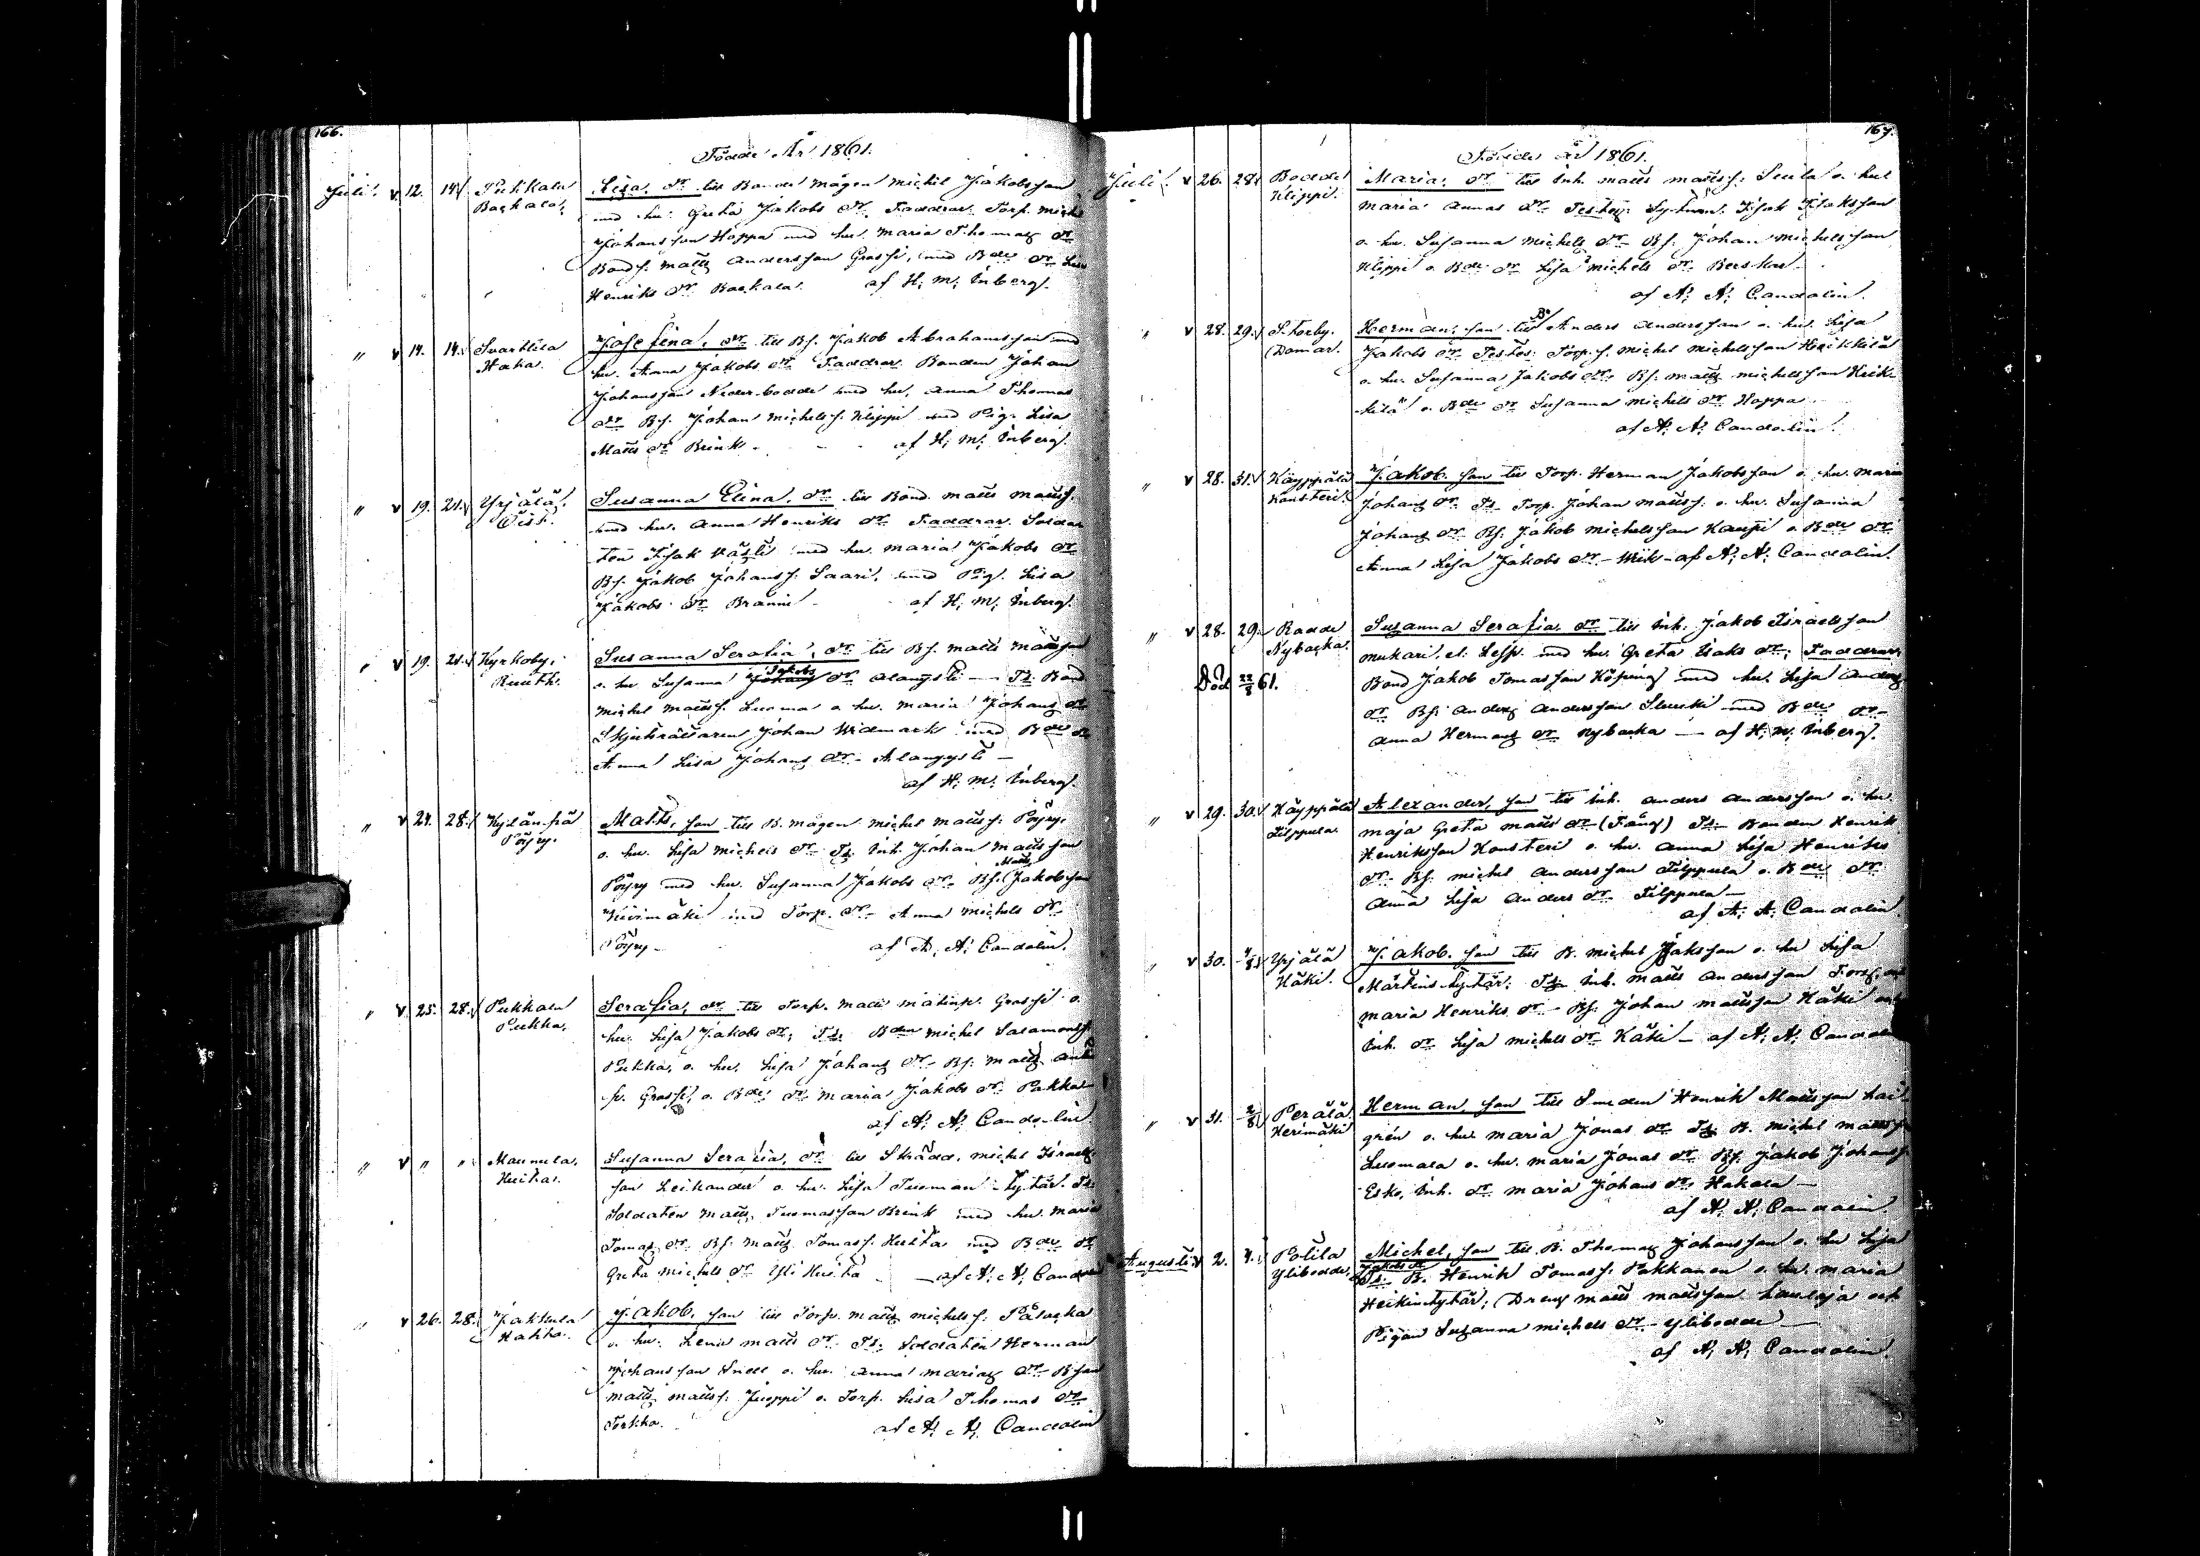 166.
Födde År 1861.
Juli. v 12. 14. Pukkala Backala. Lisa, dr till Bonde mågen Michel Jakobsson
med hu. Greta Jakobs dr. Faddrar Torp. Mich.
Johansson Hoppa med hu. Maria Thomas dr
Bonds. Matts Andersson Grassi, med Bde dr Lisa
Henriks dr Backala. af H. M. Inberg.
" v 14. 14. Svartlila Haka. Josefina, dr till Bs. Jakob Abrahamsson med
hu. Anna Jakobs dr Faddrar Bonden Johan
Johansson Nederbodde med hu. Anna Thomas
dr Bs. Johan Michelss. Klippi med Pig. Lisa
Matts dr Brink. af H. M. Inberg.
" v 19. 21. Yrjälä, Öist. Susanna Elina, dr till Bond. Matts Mattss.
med hu. Anna Henriks dr Faddrar. Solda-
ten Isak med hu. Maria Jakobs dr
Bs. Jakob Johanss. Saari, med Pig. Lisa
Jakobs dr Bränni. af H. M. Inberg.
" v 19. 21. Kyrkoby, Ruuth. Susanna Serafia, dr till Bs. Matts Mattsson
o. hu Susanna Jakobs dr Alangysti — Ts. Bond
Michel Mattss. Luoma o hu. Maria Johans dr
Skjuträttaren Johan Widmark med Bde dr
Anna Lisa Johans dr Alangysti —
af H. M. Inberg.
" v 24. 28. Kylänpä Pöyry. Matts, son till B. mågen Michel Mattss. Pöyry,
o. hu. Lisa Michels dr Ts. Inh. Johan Mattsson
Pöyry med hu. Susanna Jakobs dr. Bs. Matts Jakobsson
Kivimäki med Torp. dr Anna Michels dr
Pöyry — af A. A. Candolin.
" v 25. 28. Pukkala Pukka. Serafia, dr till Torp. Matts Grassi o.
hu. Lisa Jakobs dr, Ts. Bden Michel Salamonss.
Pukka, o. hu. Lisa Johans dr Bs. Matts
Grassi, o. Bde dr Maria Jakobs dr Pukka
af A. A. Candolin
" v " " Maunula, Huhta. Susanna Serafia, dr till Skrädd. Michel Israels
son Leikander o. hu. Lisa Tuoman tytär. Ts.
Soldaten Matts Tuomasson Brink med hu. Maria
Tomas dr Bs. Matts Tomass. Huhta med Bde dr
Greta Michels dr Yli Huhta — af A. A. Candolin
" v 26. 28. Jakkula Hakka. Jakob, son till Torp. Matts Michelss. Palacka
o. hu. Lena Matts dr Ts. Soldaten Herman
Johansson Snell o. hu. Anna Marias dr Bson
Matts Mattss. Juoppi o. Torp. Lisa Thomas dr
Torkko. af A. A. Candolin
167.
Födde år 1861.
Juli. v 26. 28. Bodde Klippi. Maria, dr till Inh. Matts Mattss. o. hu
Maria Annas dr Isak Isaksson
o. hu. Susanna Michels dr Bs. Johan Michelsson
Klippi o. Bde dr Lisa Michels dr
af A. A. Candolin.
" v 28. 29. Storby. Domar. Herman, son till B. Anders Andersson o. hu. Lisa
Jakobs dr Torp. s. Michel Michelsson Heikkilä
o. hu. Susanna Jakobs dr. Bs. Matts Michelsson Heik-
kilä o. Bde dr Susanna Michels dr Hoppa
af A. A. Candolin.
" v 28. 31. Käyppälä Kansteri. Jakob, son till Torp. Herman Jakobsson o. hu. Maria
Johans dr Ts. Torp. Johan Mattss. o. hu. Susanna
Johans dr Bs. Jakob Michelsson Kauppi o. Bde dr
Anna Lisa Jakobs dr — Wiik — af A. A. Candolin.
" v 28. 29. Bodde Nybacka. Susanna Serafia dr till Inh. Jakob Israelsson
med hu. Greta Isaks dr, Faddrar,
Död 22/8 61. Bond Jakob Tomasson Köping med hu. Lisa Anders
dr Bs. Anders Andersson med Bde dr
Anna Hermans dr Nybacka — af H. M. Inberg.
" v 29. 30. Käyppälä Filppula. Alexander, son till Inh. Anders Andersson o. hu.
Maja Greta Matts dr (Fäng) Ts. Bonden Henrik
Henriksson Kansteri o. hu. Anna Lisa Henriks
dr. Bs. Michel Andersson Filppula o. Bde dr
Anna Lisa Anders dr Filppula —
af A. A. Candolin.
" v 30. 4/8 Yrjälä Käki. Jakob, son till B. Michel o. hu Lisa
Märtens tytär; Ts. Inh. Matts Andersson
Maria Henriks dr — Bs. Johan Mattsson Käki
Inh. dr Lisa Michels dr Käki — af A. A. Candolin
" v 31. 2/8 Perälä Kerimäki Herman, son till Smeden Henrik Mattsson
o. hu. Maria Jonas dr Ts. B. Michel Mattss.
Luomala o. hu. Maria Jonas dr Bs. Jakob Johanss.
Esko, Inh. dr Maria Johans dr Hakala —
af A. A. Candolin
Augusti v 2. 4. Potila Ylibodde. Michel, son till B. Thomas Johansson o. hu Lisa
Jakobs dr Ts. B. Henrik Tomass. Pakkanen o. hu. Maria
Heikintytär; Dreng Matts Mattsson och
Pigan Susanna Michels dr — Ylibodde —
af A. A. Candolin.